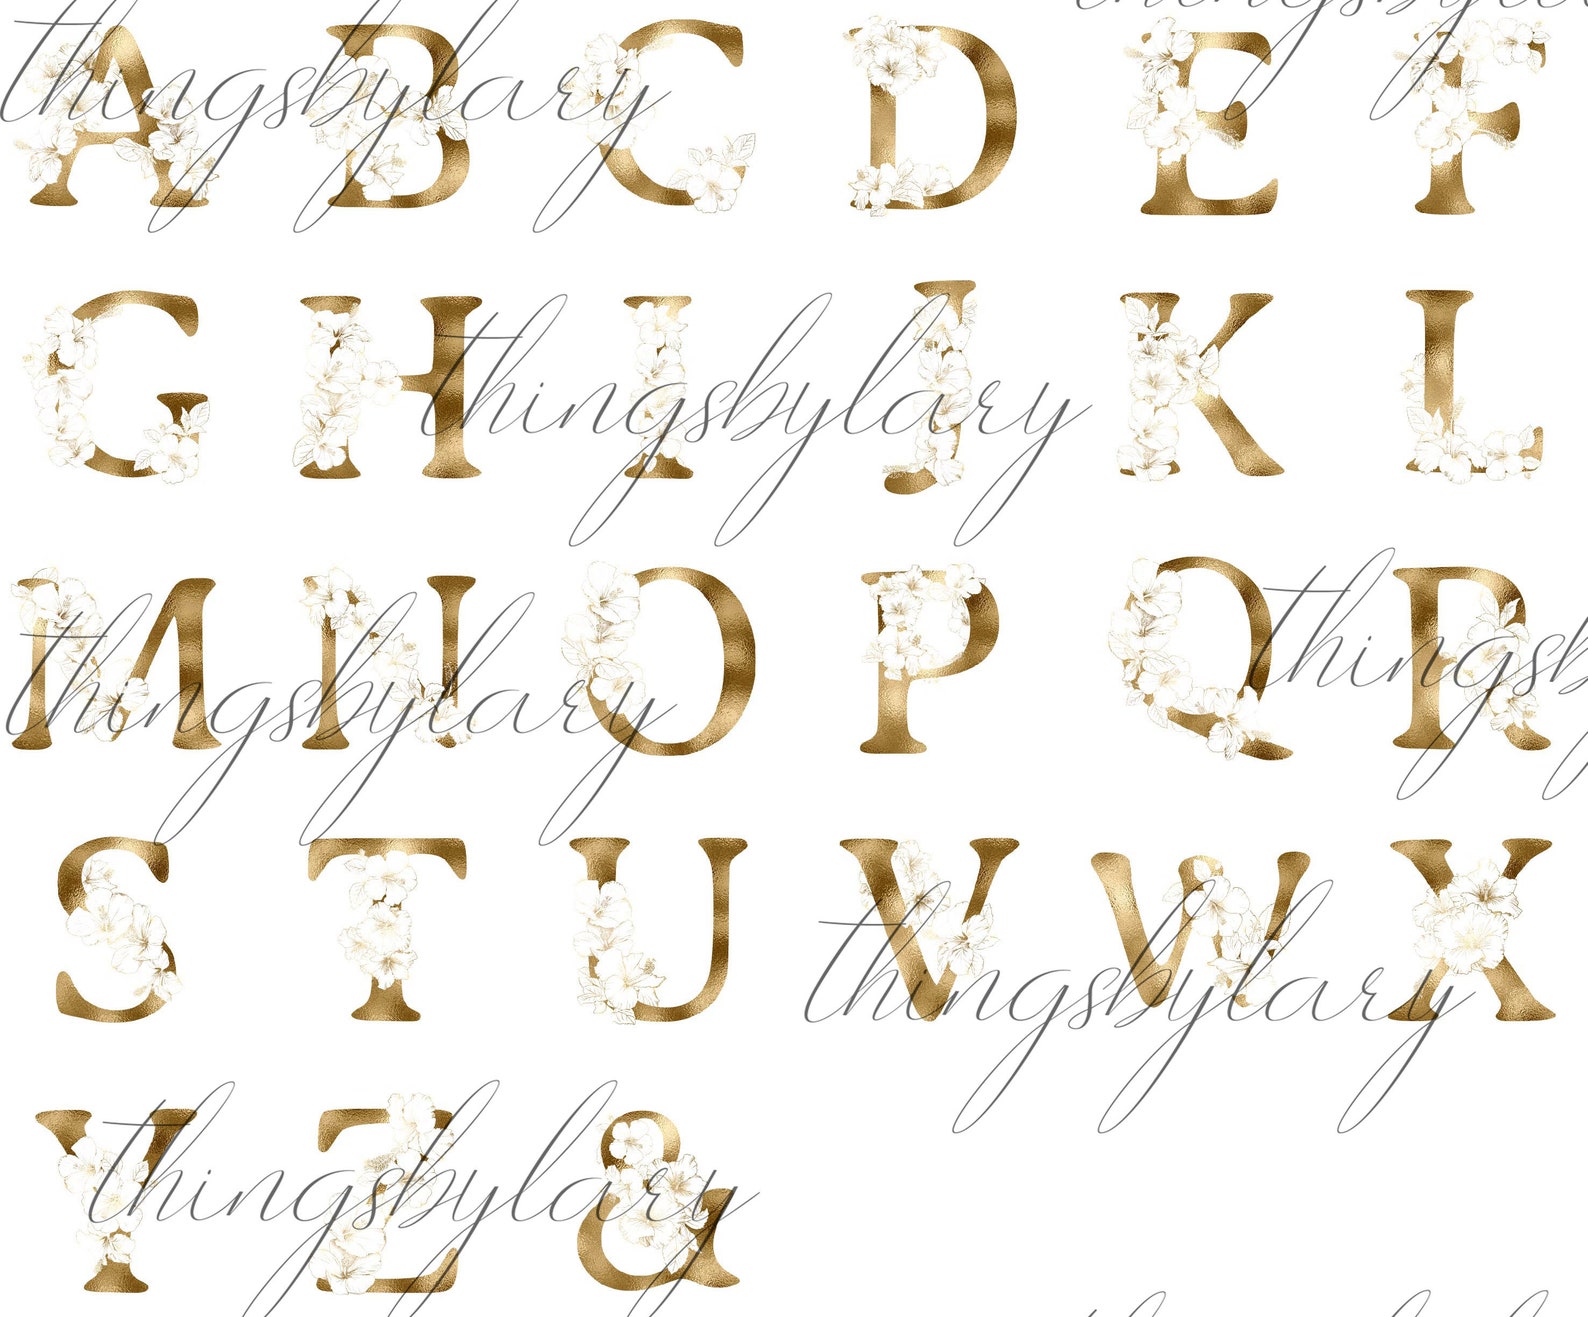 thingsbylary
thingsbylary
A B C D E F
G H I J K L
thingsbylary
M N O P Q R
thingsbylary
thingsby
S T U V W X
thingsbylary
Y Z &
thingsbylary